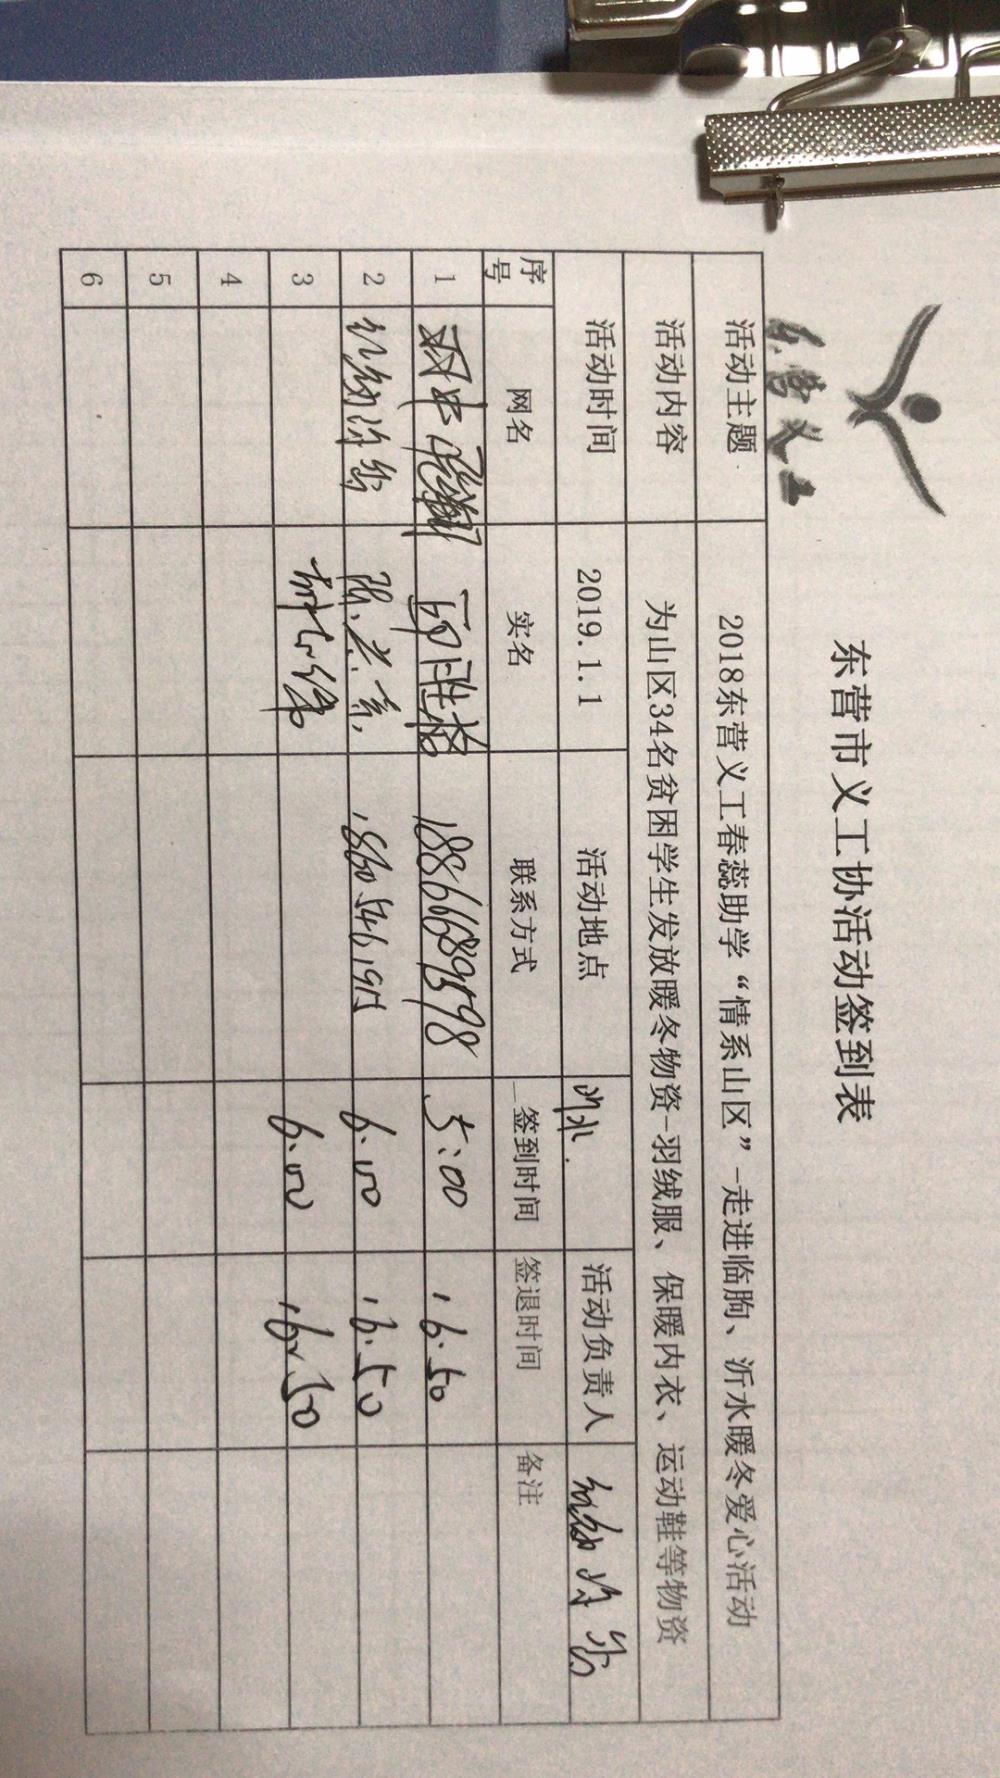 东营义工
东营市义工协活动签到表
活动主题 2018东营义工春蕊助学“情系山区”-走进临朐、沂水暖冬爱心活动
活动内容 为山区34名贫困学生发放暖冬物资-羽绒服、保暖内衣、运动鞋等物资
活动时间 2019.1.1 活动地点 沂水. 活动负责人
序号 网名 实名 联系方式 签到时间 签退时间 备注
1 18866689598 5:00 16.50
2 6.00 16.50
3 6.00 16.50
4
5
6